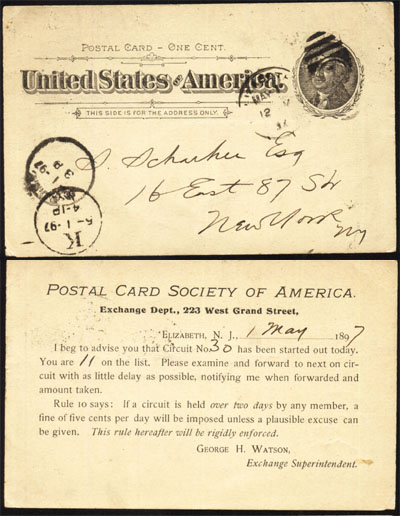 POSTAL CARD – ONE CENT.
United States of America.
THIS SIDE IS FOR THE ADDRESS ONLY.
MAY
12
S. Schachne Esq
16 East 87 Str
New York
NY
K
5-1-97
4-1P
POSTAL CARD SOCIETY OF AMERICA.
Exchange Dept., 223 West Grand Street,
ELIZABETH, N. J., 1 May 1897
I beg to advise you that Circuit No. 30 has been started out today.
You are 11 on the list. Please examine and forward to next on cir-
cuit with as little delay as possible, notifying me when forwarded and
amount taken.
Rule 10 says: If a circuit is held over two days by any member, a
fine of five cents per day will be imposed unless a plausible excuse can
be given. This rule hereafter will be rigidly enforced.
GEORGE H. WATSON,
Exchange Superintendent.